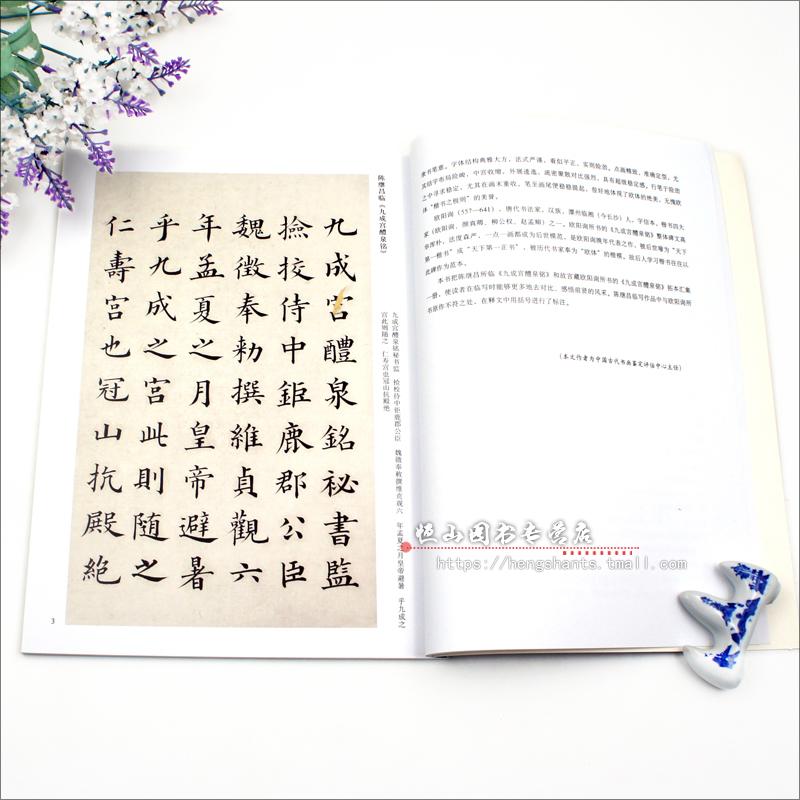 陈继昌临《九成宫醴泉铭》
九成宫醴泉銘祕書監
撿挍侍中鉅鹿郡公臣
魏徵奉勅撰維貞觀六
年孟夏之月皇帝避暑
乎九成之宫此則随之
仁壽宫也冠山抗殿絶
九成宫醴泉铭秘书监 检校侍中钜鹿郡公臣 魏徵奉敕撰维贞观六 年孟夏之月皇帝避暑 乎九成之
宫此则随之 仁寿宫也冠山抗殿绝
3
隶书笔意。字体结构典雅大方，法式严谨，看似平正，实则险劲。点画精致，准确定型，尤
其结字布局险峻，中宫收缩，外展逶迤，疏密聚散对比强烈，具有超级稳定感，行笔于险密
之中寻求稳定，尤其在画末重收，笔至画尾便稳稳提起，恰好地体现了欧体的绝美，无愧欧
体“楷书之极则”的美誉。
欧阳询（557—641），唐代书法家，汉族，潭州临湘（今长沙）人，字信本，楷书四大
家（欧阳询、颜真卿、柳公权、赵孟頫）之一。欧阳询所书的《九成宫醴泉铭》整体满文高
华浑朴，法度森严，一点一画都成为后世模范，是欧阳询晚年代表之作，被后世喻为“天下
第一楷书”或“天下第一正书”，被历代书家奉为“欧体”的楷模，故后人学习楷书往往以
此碑作为范本。
本书把陈继昌所临《九成宫醴泉铭》和故宫藏欧阳询所书的《九成宫醴泉铭》拓本汇集
一册，使读者在临写时能够更多地去对比、感悟前贤的风采。陈继昌临写作品中与欧阳询所
书原作不符之处，在释文中用括号进行了标注。
（本文作者为中国古代书画鉴定评估中心主任）
恒山图书专营店
https://hengshants.tmall.com